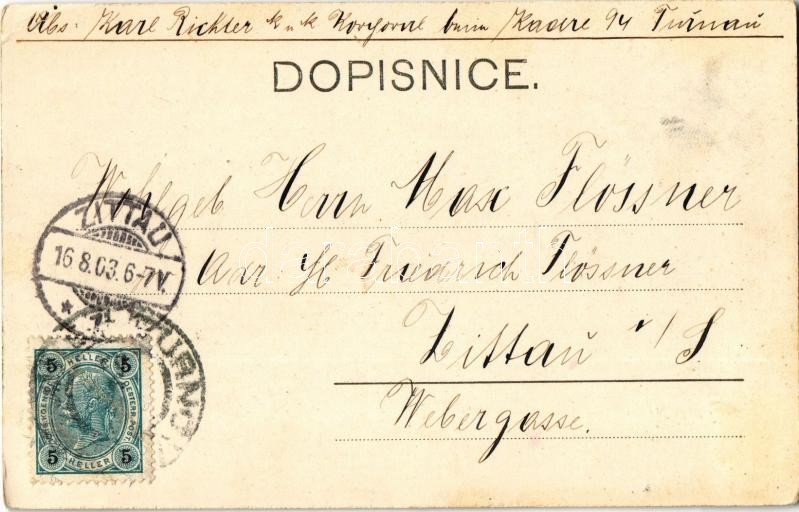 Abs: Karl Richter k u k Korporal beim Kadre 94 Turnau
DOPISNICE.
Wohlgeb Herrn Max Flössner
Adr. H Friedrich Flössner
Zittau i/S
Webergasse.
ZITTAU
16.8.03.6-7V.
TURNAU
5 HELLER 5
OESTERR. POST.
5 HELLER 5